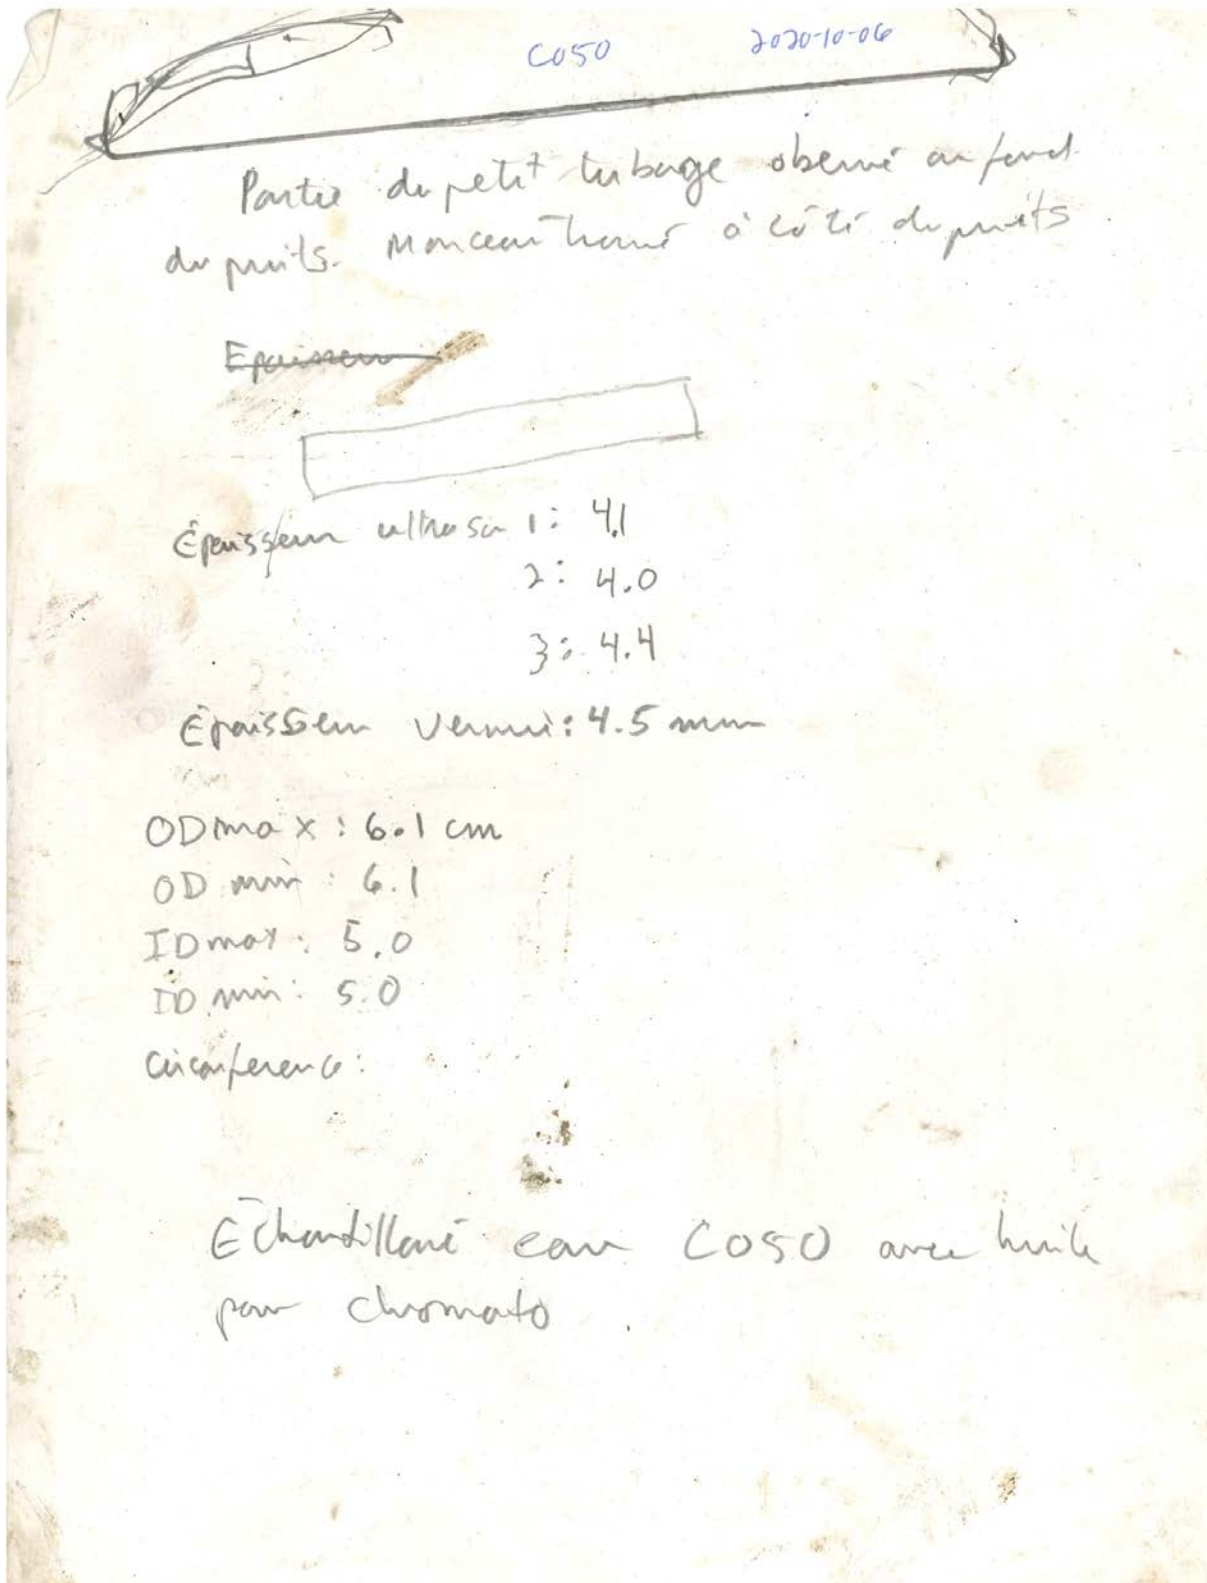 C050 2020-10-06
Partie du petit tubage observé au fond
du puits. Morceau trouvé à côté du puits
Epaisseur
Épaisseur ultrason 1: 4.1
2: 4.0
3: 4.4
Épaisseur vernier: 4.5 mm
OD max: 6.1 cm
OD min: 6.1
ID max: 5.0
ID min: 5.0
Circonference:
Échantillonné eau C050 avec huile
pour chromato